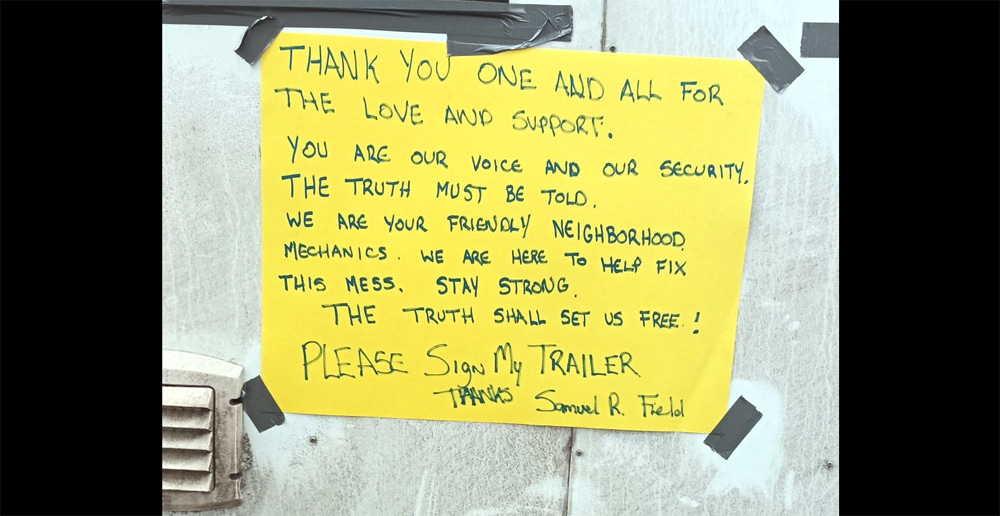 THANK YOU ONE AND ALL FOR
THE LOVE AND SUPPORT.
YOU ARE OUR VOICE AND OUR SECURITY.
THE TRUTH MUST BE TOLD.
WE ARE YOUR FRIENDLY NEIGHBORHOOD
MECHANICS. WE ARE HERE TO HELP FIX
THIS MESS. STAY STRONG.
THE TRUTH SHALL SET US FREE.!
PLEASE Sign My TRAILER
THANKS Samuel R. Field